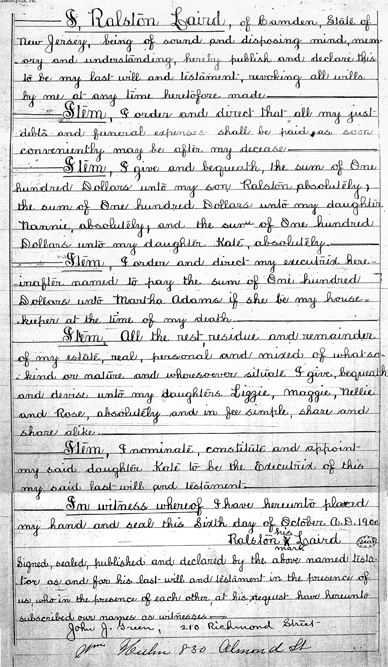 I, Ralston Laird, of Camden, State of
New Jersey, being of sound and disposing mind, mem-
ory and understanding, hereby publish and declare this
to be my last will and testament, revoking all wills
by me at any time heretofore made
Item, I order and direct that all my just
debts and funeral expenses shall be paid as soon
conveniently may be after my decease
Item, I give and bequeath, the sum of One
hundred Dollars unto my son Ralston absolutely;
the sum of One hundred Dollars unto my daughter
Nannie, absolutely, and the sum of One hundred
Dollars unto my daughter Kate, absolutely.
Item, I order and direct my executrix here-
inafter named to pay the sum of One hundred
Dollars unto Martha Adams if she be my house-
keeper at the time of my death.
Item, All the rest, residue and remainder
of my estate, real, personal and mixed of what-so-
kind or nature and wheresoever situate I give, bequeath
and devise unto my daughters Lizzie, Maggie, Nellie
and Rose, absolutely and in fee simple, share and
share alike.
Item, I nominate, constitute and appoint
my said daughter Kate to be the Executrix of this
my said last will and testament
In witness whereof I have hereunto placed
my hand and seal this Sixth day of October A.D. 1900
his
Ralston X Laird
mark
Signed, sealed, published and declared by the above named testa-
tor as and for his last will and testament in the presence of
us who in the presence of each other, at his request have hereunto
subscribed our names as witnesses.
John J. Green, 210 Richmond Street
Wm 830 Almond St